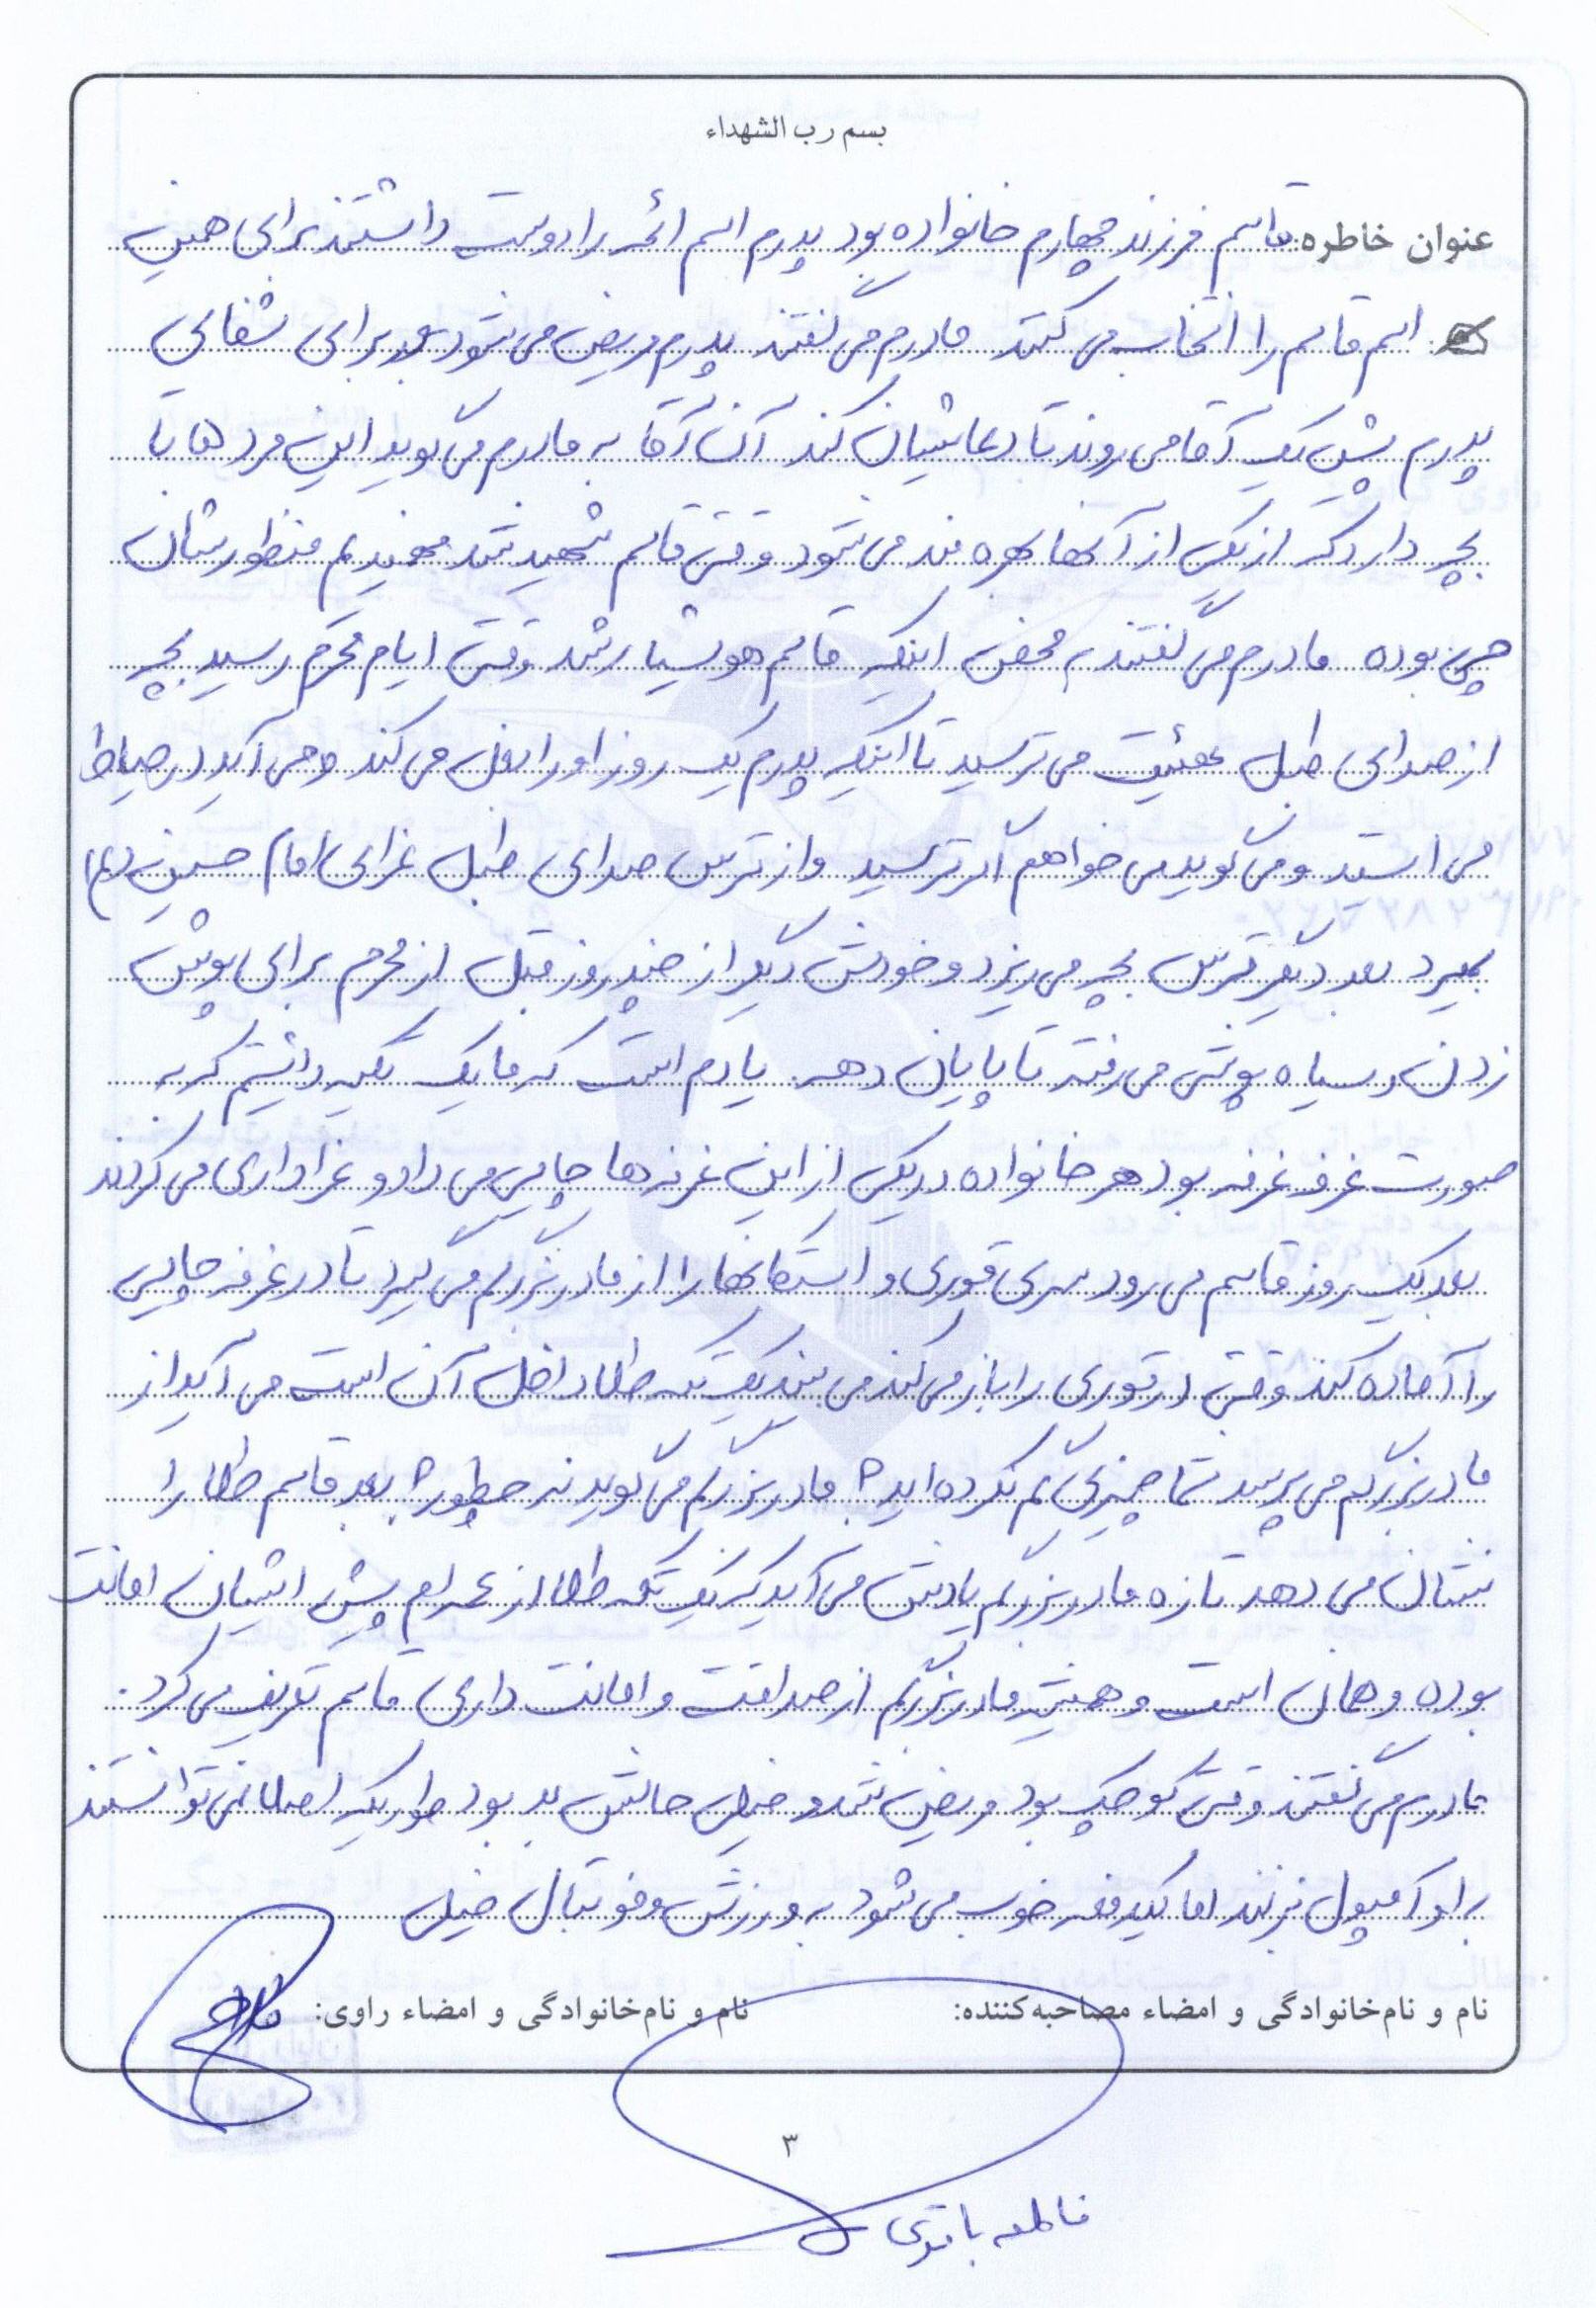 بسم رب الشهداء
عنوان خاطره: قاسم فرزند چهارم خانواده بود پدرم اسم ائمه را دوست داشتند برای همین
اسم قاسم را انتخاب می کنند مادرم می گفتند پدرم مریض می شود بعد برای شفای
پدرم پیش یک آقا می روند تا دعا کند آن آقا به مادرم می گوید این مرد تا
بچه دارد که از یکی از آنها بهره مند می شود وقتی قاسم شهید شد فهمیدیم منظورشان
چی بوده مادرم می گفتند به محض اینکه قاسم هوشیار شد وقتی ایام محرم رسید بچه
از صدای طبل می ترسید تا اینکه پدرم یک روز او را بغل می کند و می آید در حیاط
می استد و می گوید می خواهم اگر ترسید و از ترس صدای طبل عزای امام حسین (ع)
بمیرد بعد دیگر ترس بچه می ریزد و خودش دیگر از چند روز قبل از محرم برای پوش
زدن و سیاه پوشی می رفت تا پایان دهه. یادم است که ما یک تکیه داشتیم که به
صورت غرفه غرفه بود هر خانواده در یکی از این غرفه ها چایی می داد و عزاداری می کردند
بعد یک روز قاسم می رود سری قوری و استکانها را از مادربزرگم می گیرد تا در غرفه چایی
را آماده کند وقتی در قوری را باز می کند می بیند یک تکه طلا داخل آن است می آید از
مادربزرگم می پرسد شما چیزی گم نکرده اید؟ مادربزرگم می گوید نه چطور؟ بعد قاسم طلا را
نشان می دهد تازه مادربزرگم یادش می آید که یک تکه طلا از عمه ام پیش ایشان امانت
بوده و همان است و همیشه مادربزرگم از صداقت و امانت داری قاسم تعریف می کرد.
مادرم می گفتند وقتی کوچک بود مریض شد و خیلی حالش بد بود طوریکه اصلا نمی توانستند
به او آمپول بزنند اما یکدفعه خوب می شود به ورزش و فوتبال خیلی
نام و نام‌خانوادگی و امضاء مصاحبه‌کننده: نام و نام‌خانوادگی و امضاء راوی:
۳
فاطمه باقری